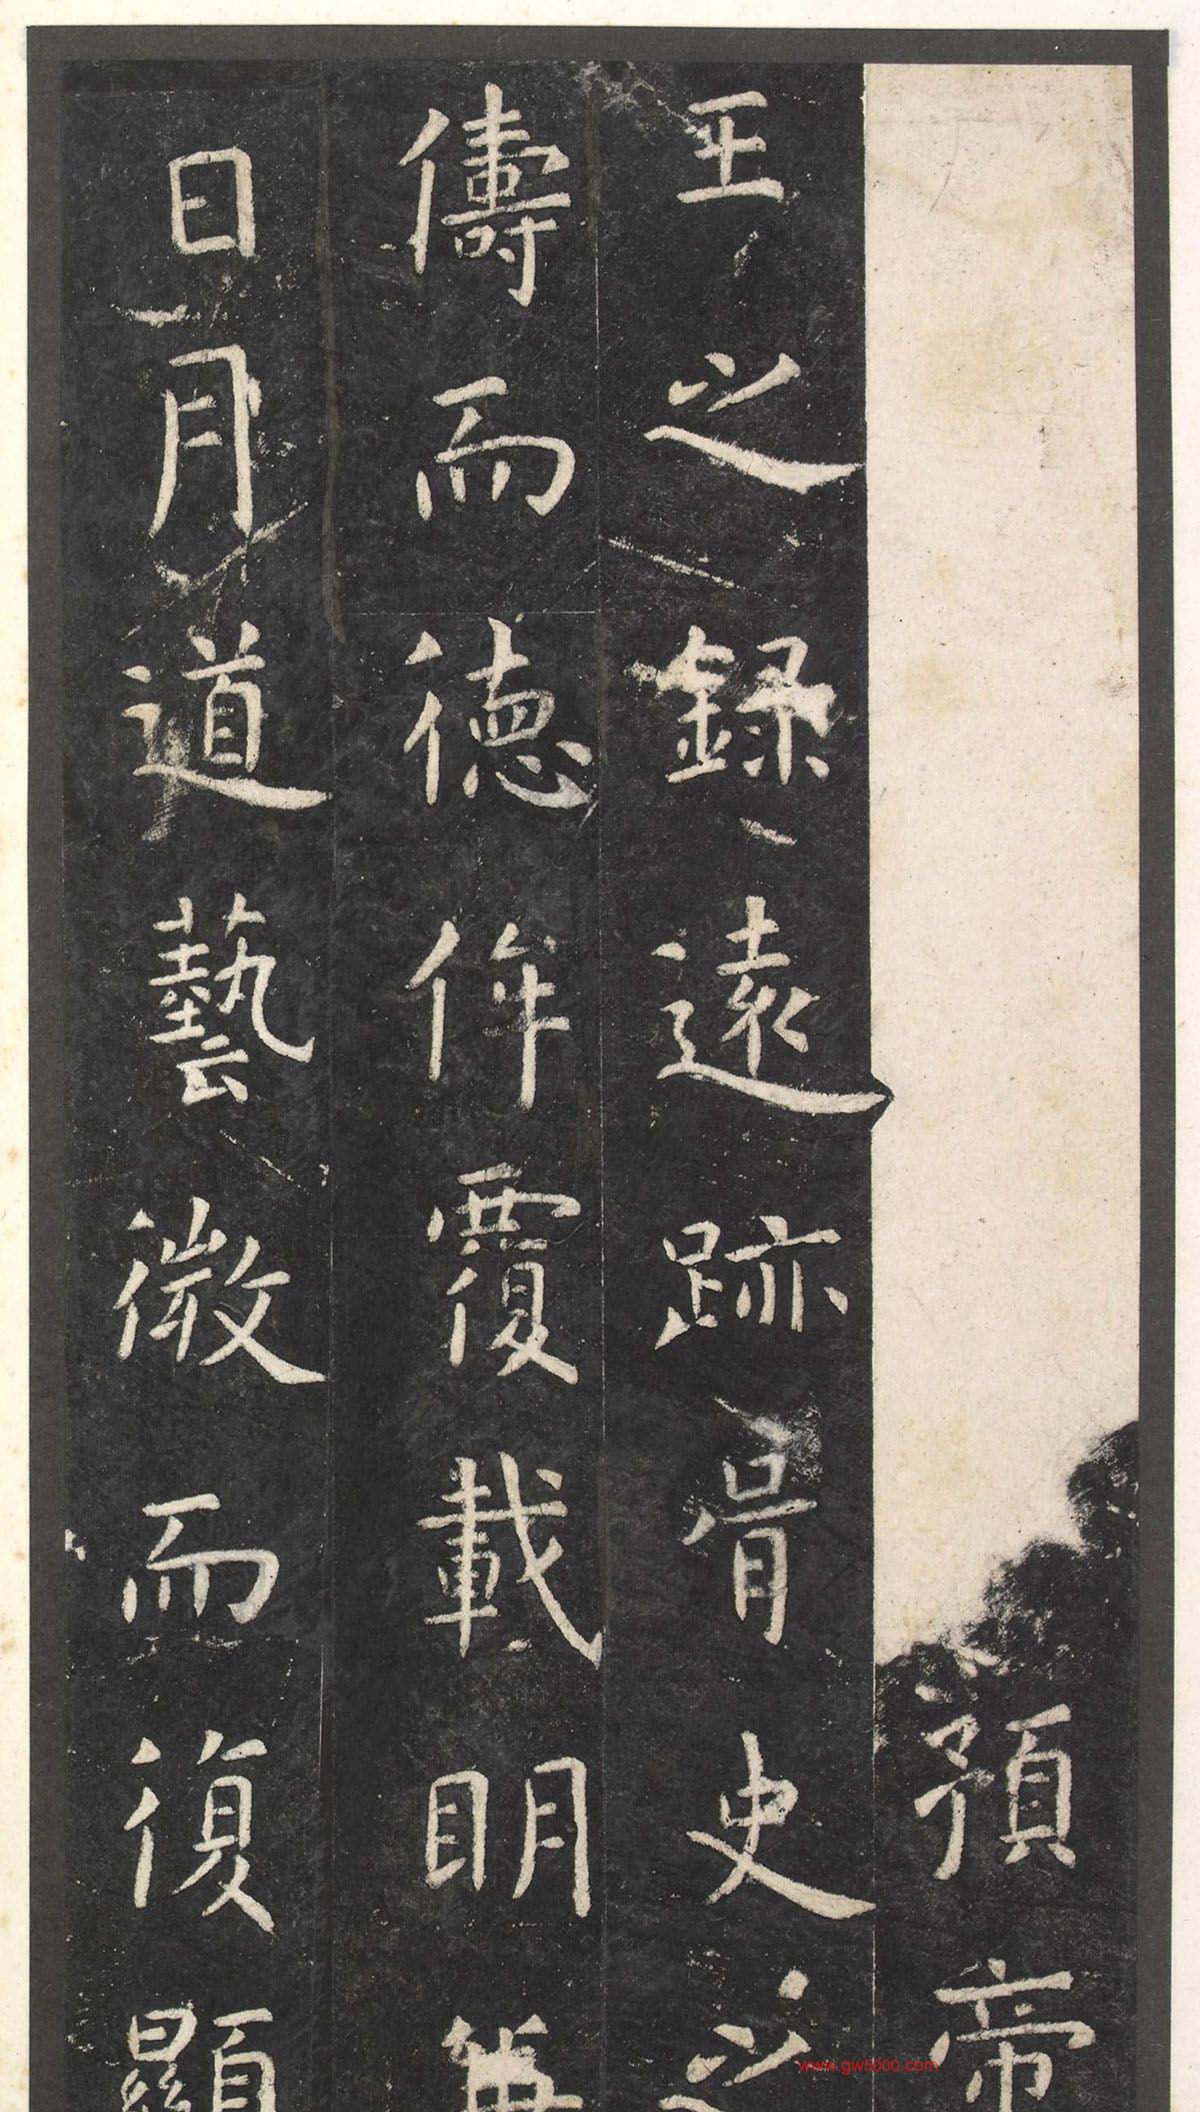 預帝
王之錄遠跡胥史之
儔而德侔覆載明並
日月道藝微而復顯
www.gw5000.com